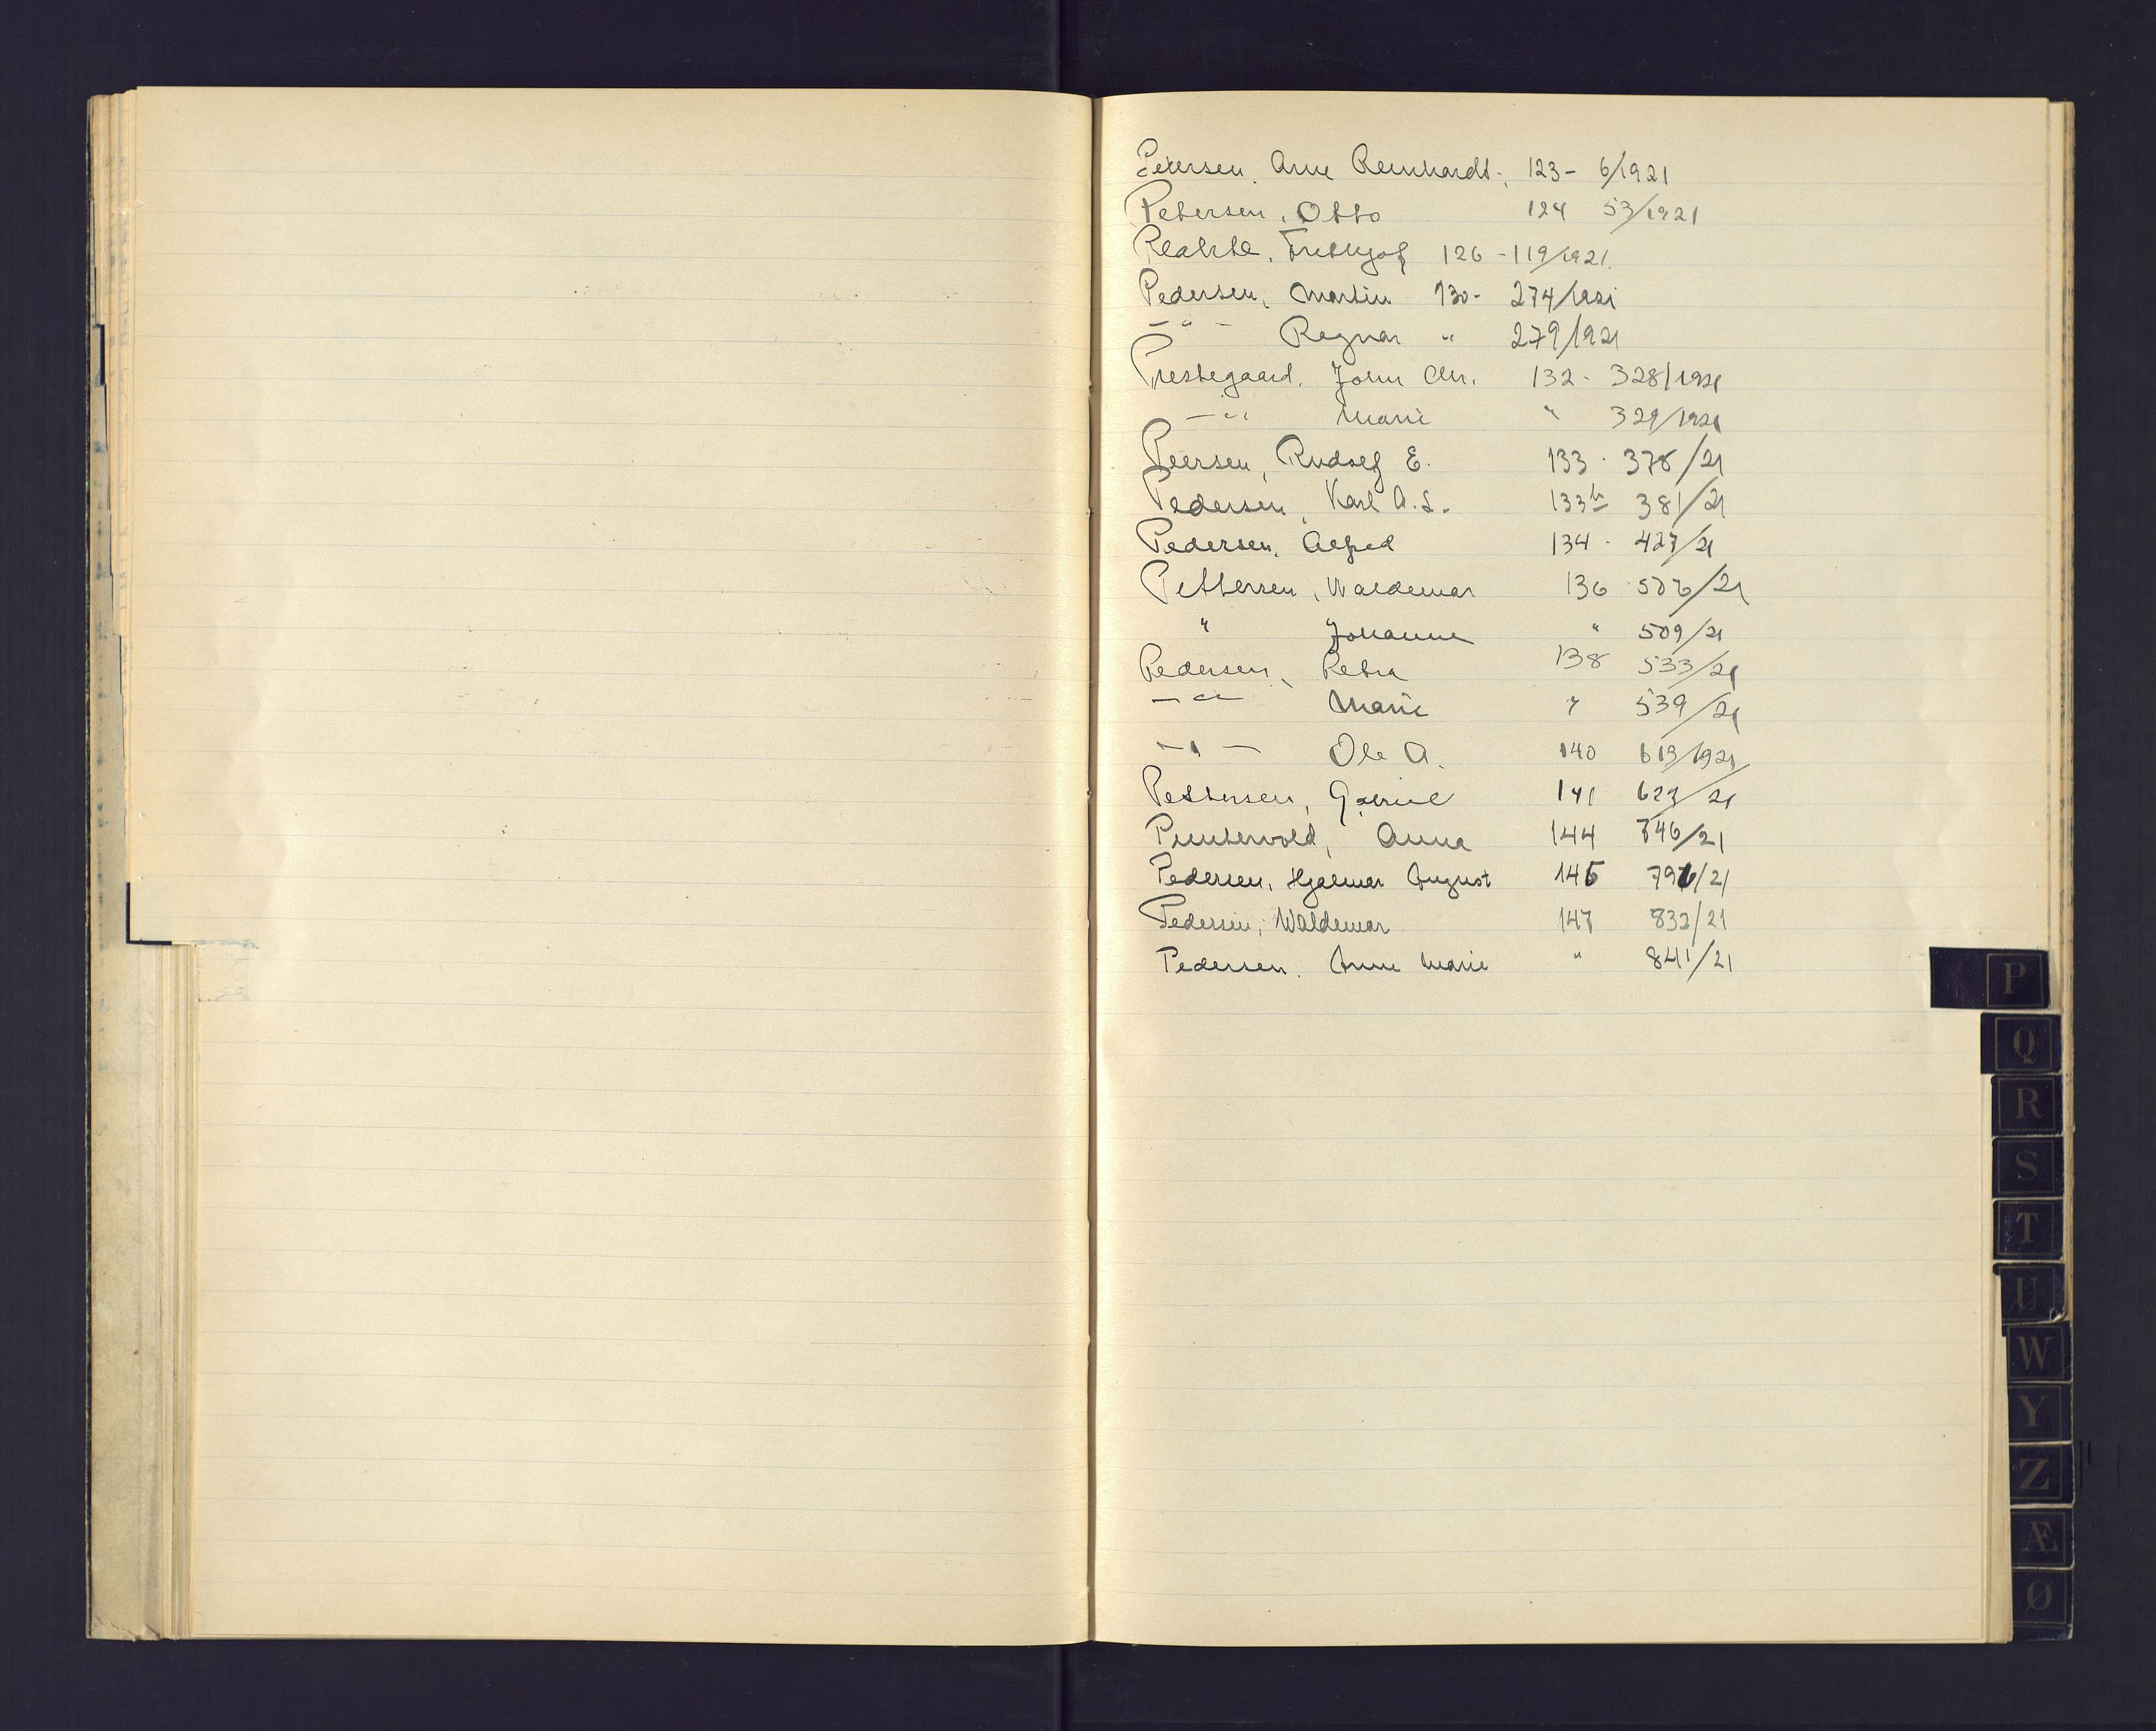 Petersen, Arne Reinhardt. 123 - 6/1921
Petersen, Otto 124 53/1921
Fritthjof 126 - 119/1921.
Pedersen, Martin 130 - 274/1921
— " — Ragnar " 279/1921
Prestegaard, John Chr. 132 - 328/1921
— " Marie " 329/1921
Peersen, Rudolf E. 133 - 378/21
Pedersen, Karl A. L. 133b 381/21
Pedersen, Alfred 134 - 427/21
Pettersen, Waldemar 136 506/21
" Johanne " 509/21
Pedersen, Petra 138 533/21
— " — Marie " 539/21
— " — Ole A. 140 613/1921
Pettersen, Gabriel 141 623/21
Puntervold, Anna 144 746/21
Pedersen, Hjalmar August 146 796/21
Pedersen, Waldemar 147 832/21
Pedersen, Anne Marie " 841/21
P
Q
R
S
T
U
W
Y
Z
Æ
Ø